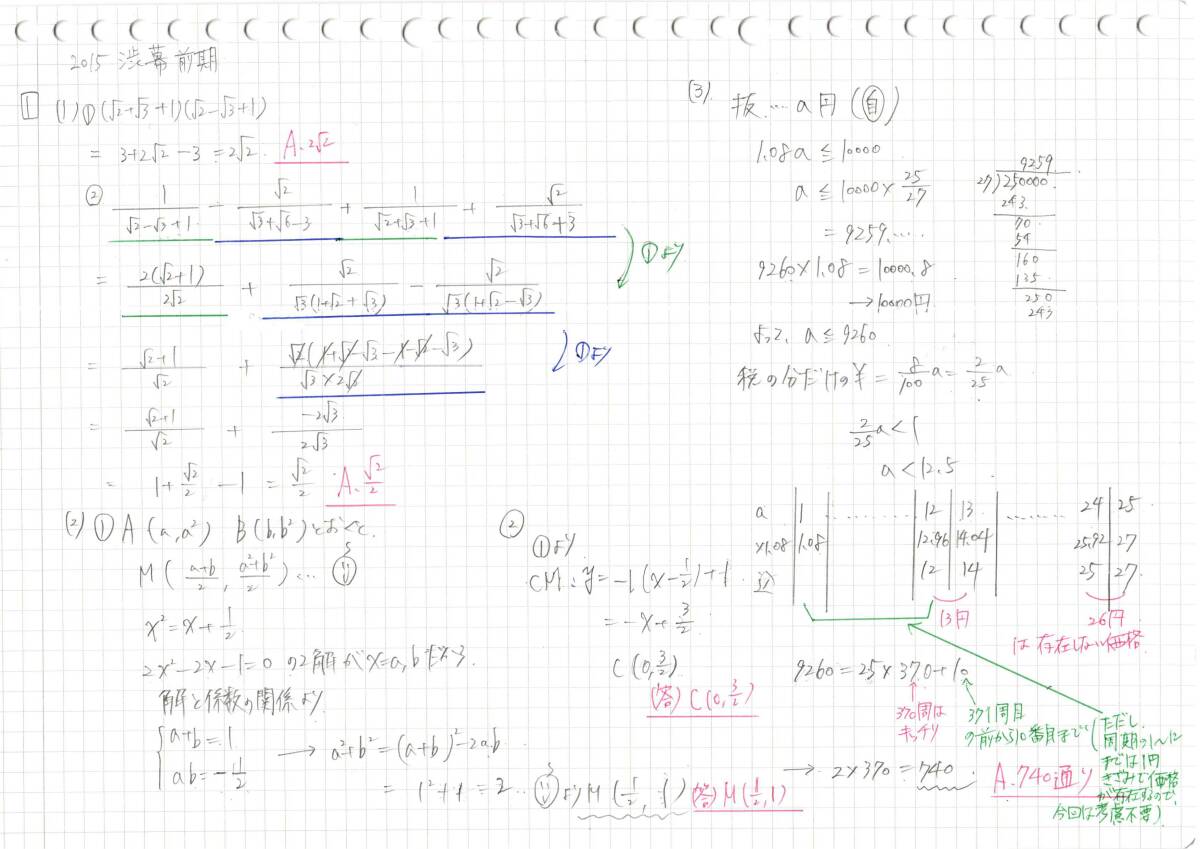 2015 渋幕前期
1 (1)①(√2+√3+1)(√2-√3+1)
= 3+2√2-3 = 2√2. A. 2√2
② 1/(√2-√3+1) - √2/(√3+√6-3) + 1/(√2+√3+1) + √2/(√3+√6+3)
①より
= 2(√2+1)/2√2 + √2/√3(1+√2+√3) - √2/√3(1+√2-√3)
①より
= (√2+1)/√2 + √2(1+√2-√3-1-√2-√3)/(√3×2√2)
= (√2+1)/√2 + -2√3/2√3
= 1+√2/2 -1 = √2/2 A. √2/2
(2) ① A(a, a²) B(b, b²)とおくと、
M((a+b)/2, (a²+b²)/2) …
x²=x+1/2
2x²-2x-1=0 の2解がx=a, b
解と係数の関係より
{a+b=1
ab=-1/2
→ a²+b²=(a+b)²-2ab
= 1²+1=2
より M(1/2, 1) (答) M(1/2, 1)
②
①より
CM: y=-1(x-1/2)+1
= -x+3/2
C(0, 3/2)
(答) C(0, 3/2)
(3) 抜 … a円 (自)
1.08a ≦ 10000
a ≦ 10000×25/27
= 9259.….
9260×1.08=10000.8
→10000円
よって、a≦9260
9259
27)250000.
243
70
54
160
135
250
243
税の分だけの¥ = 8/100 a = 2/25 a
2/25 a < 1
a < 12.5
a 1 ……… 12 13 ……… 24 25
×1.08 1.08 12.96 14.04 25.92 27
込 12 14 25 27
13円 26円
は存在しない価格
9260 = 25×370+10
370周は
キッチリ
371周目
の前から10番目まで
(ただし、
周期の1~12
までは1円
きざみで価格
が存在するので、
今回は考慮不要)
→ 2×370=740. A. 740通り